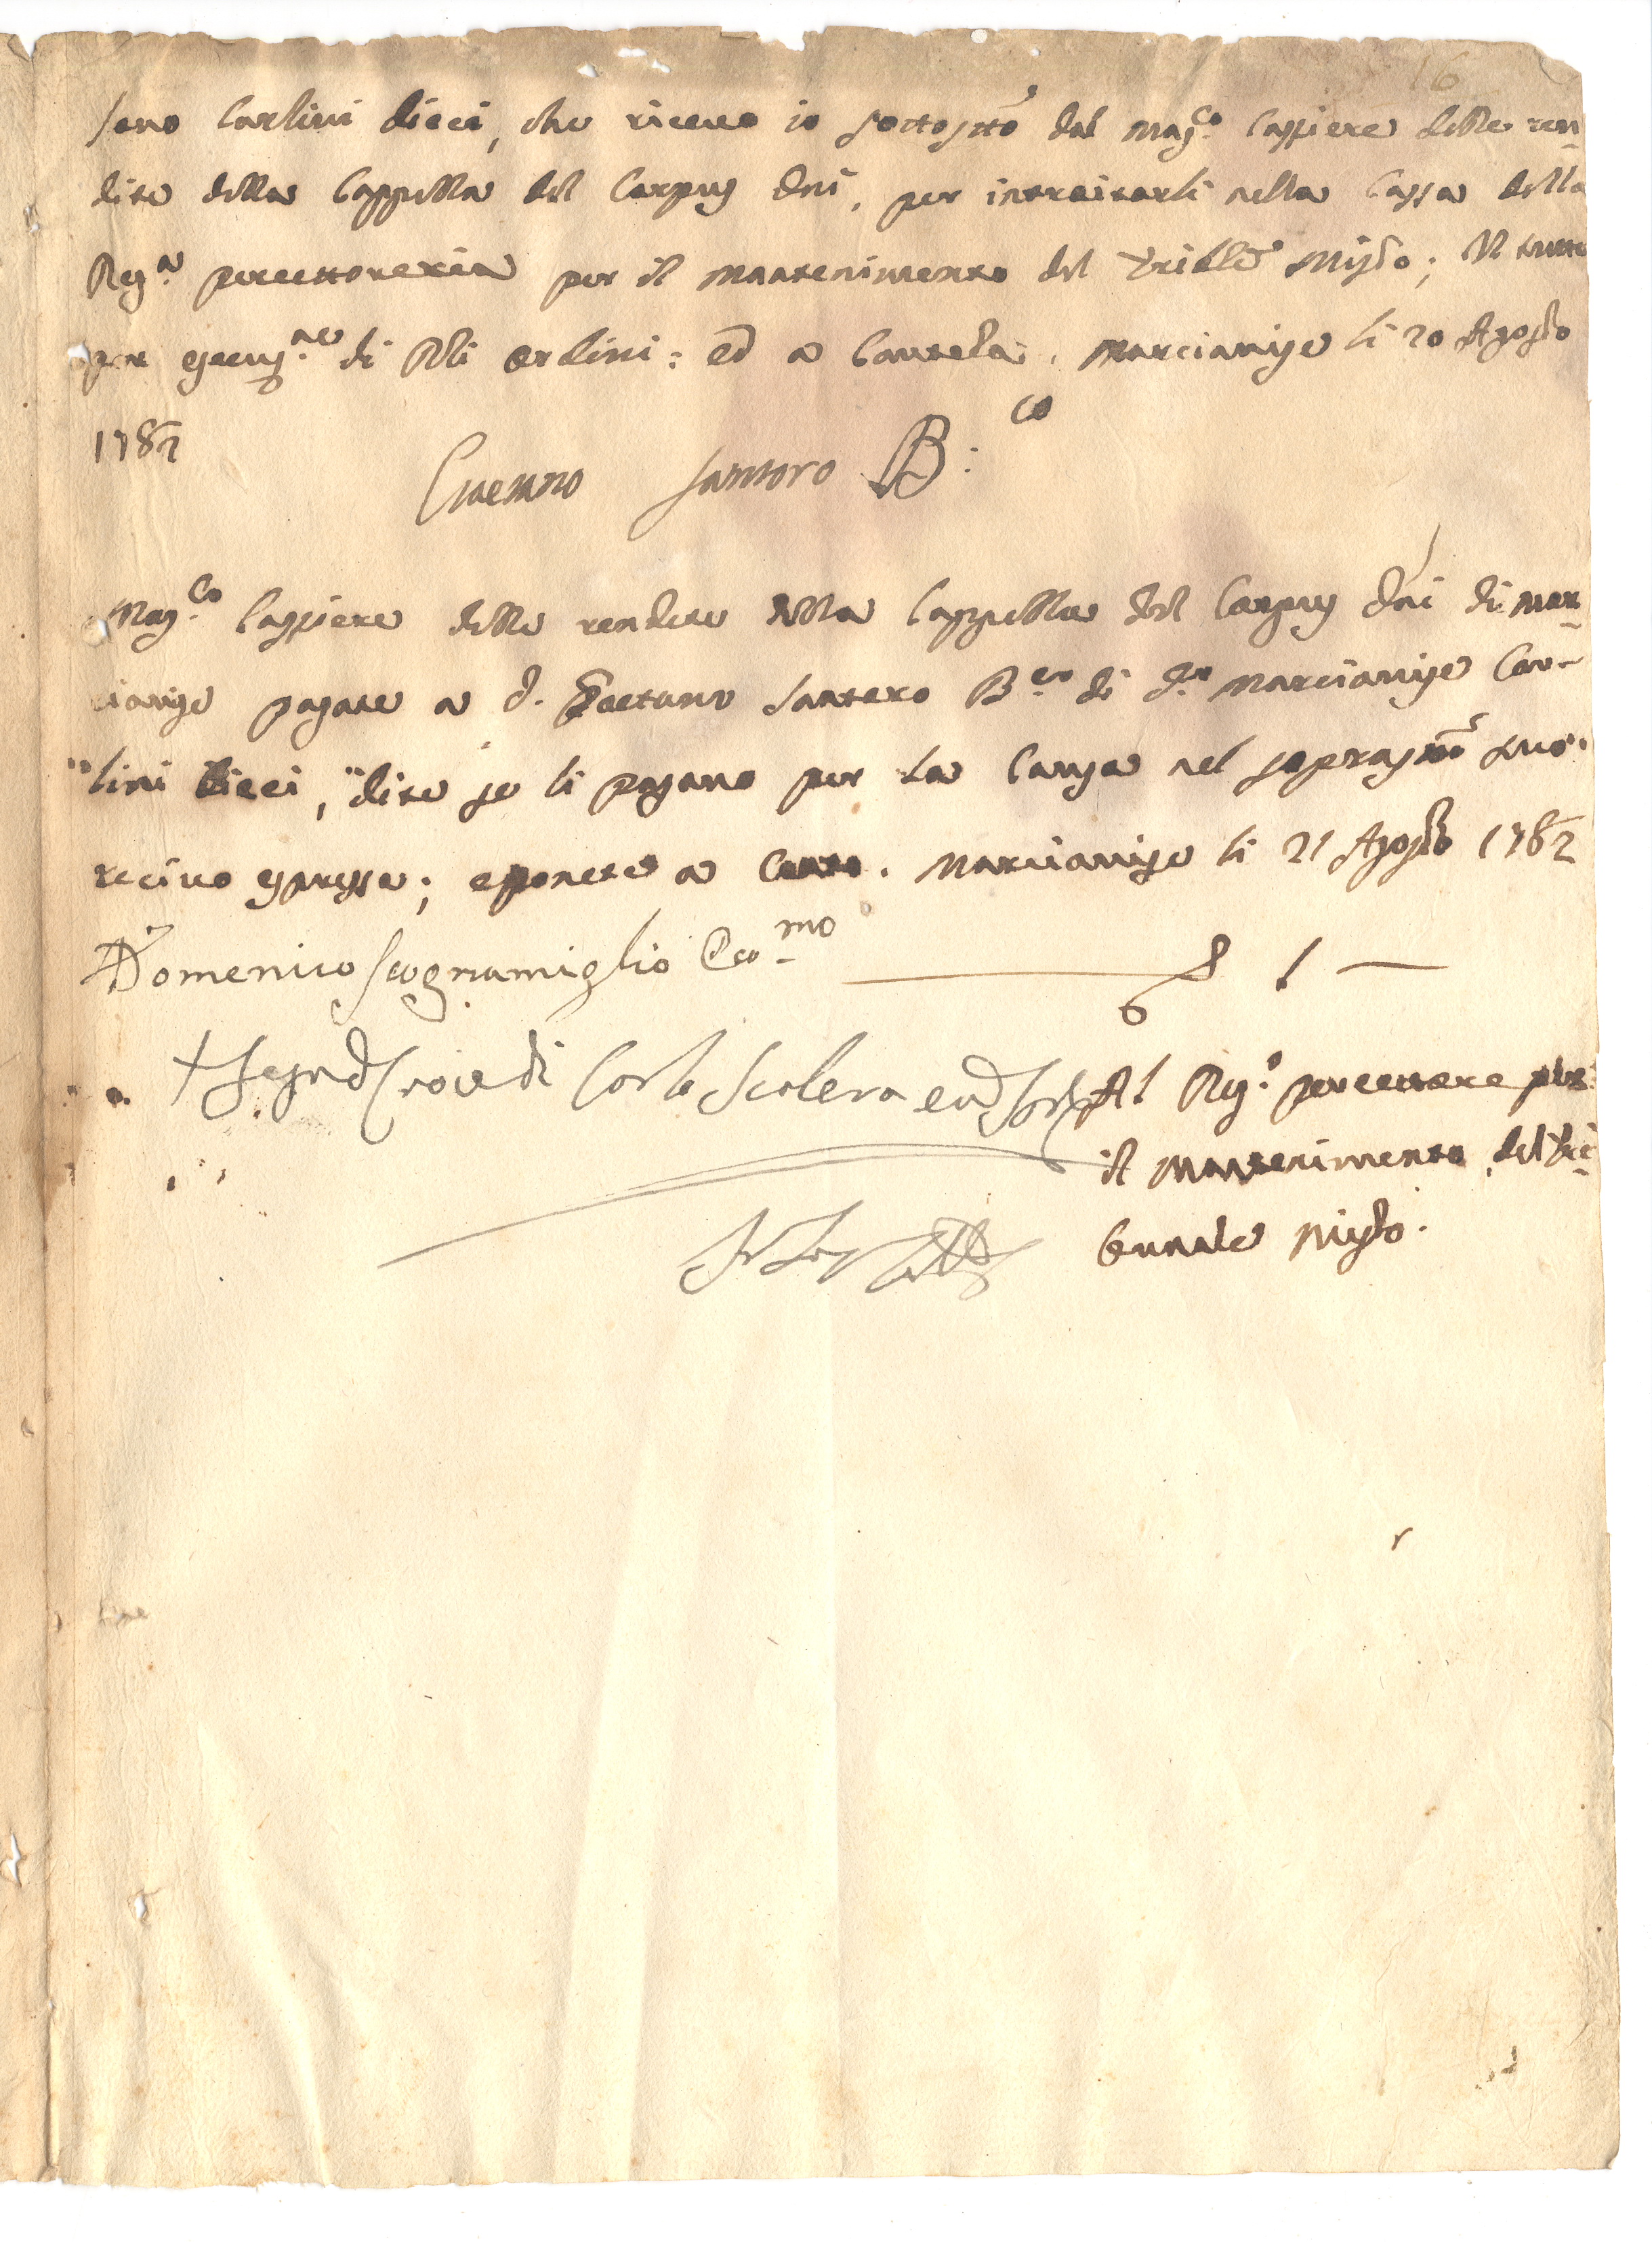 16
Sono Carlini dieci, che riceuo io sottostto dal Mag.co Cassiere delle ren
dite della Cappella del Corpus Dni, per introitarli nella Cassa della
Reg.a percettoreria per il mantenimento del Trible Misto; Il tutto
per esecuz.ne di Rli ordini: ed a Cautela. Marcianise li 20 Agosto
1782
Gaetano Santoro B:co
Mag.co Cassiere delle rendite della Cappella del Corpus Dni di Mar
cianise pagate a D. Gaetano Santoro B.co di d.a Marcianise Car-
lini dieci, dite se li pagano per la Causa nel soprastto suo
riceuo espressa; e ponete a Conto. Marcianise li 21 Agosto 1782
Domenico Scognamiglio Eco.mo
1 —
+ Segno di Croce di Carlo Scalera
Al Reg.o percettore per
il mantenimento del Tri
bunale Misto.